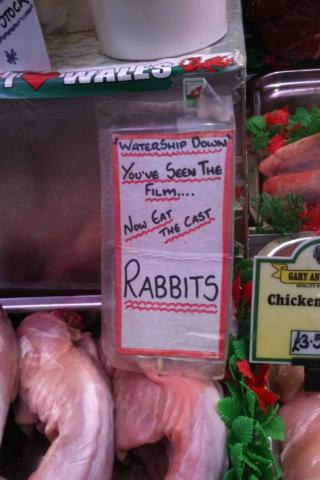 STOCK
I ❤ WALES
WATERSHIP DOWN
YOU'VE SEEN THE
FILM....
NOW EAT
THE CAST
RABBITS
GARY AN
Chicken
£3.5